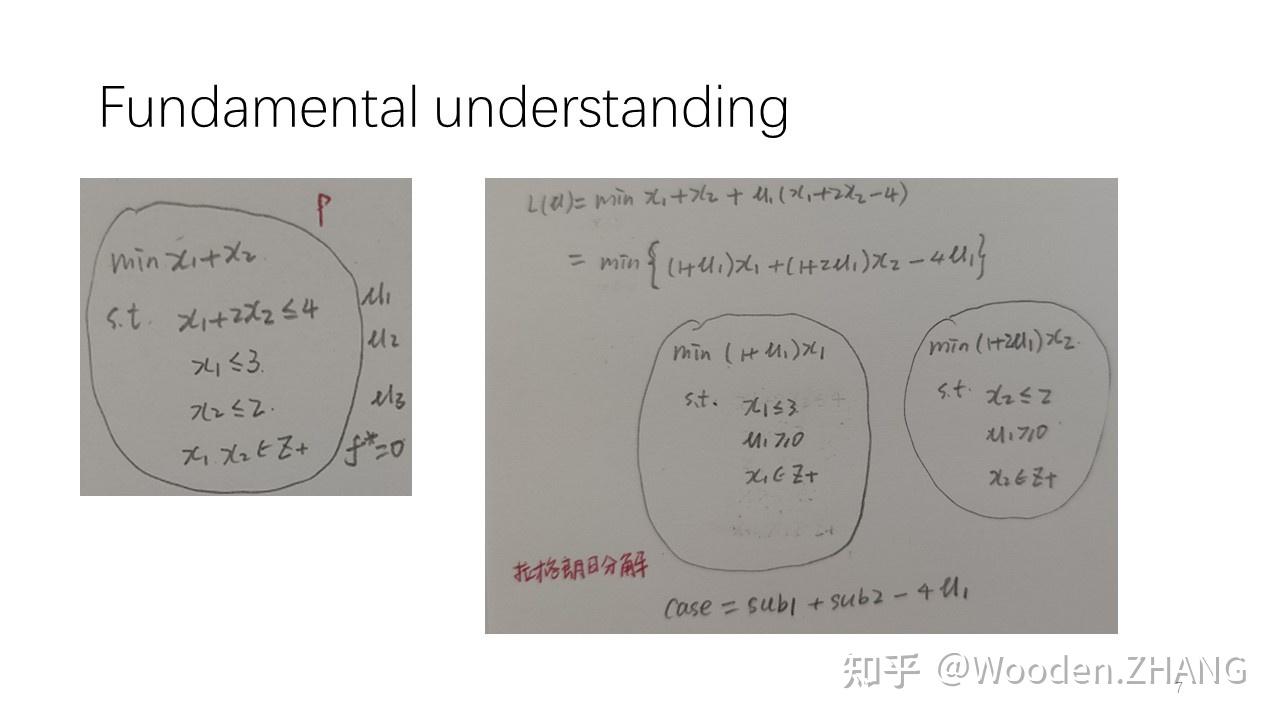 Fundamental understanding
P
min x₁+x₂
s.t. x₁+2x₂≤4 μ₁
x₁≤3. μ₂
x₂≤2. μ₃
x₁ x₂∈Z+ f*=0
L(μ)= min x₁+x₂ + μ₁(x₁+2x₂-4)
= min{(1+μ₁)x₁+(1+2μ₁)x₂-4μ₁}
min (1+μ₁)x₁
s.t. x₁≤3
μ₁≥0
x₁∈Z+
min (1+2μ₁)x₂
s.t. x₂≤2
μ₁≥0
x₂∈Z+
拉格朗日分解
Case = sub1 + sub2 - 4μ₁
知乎 @Wooden.ZHANG
7